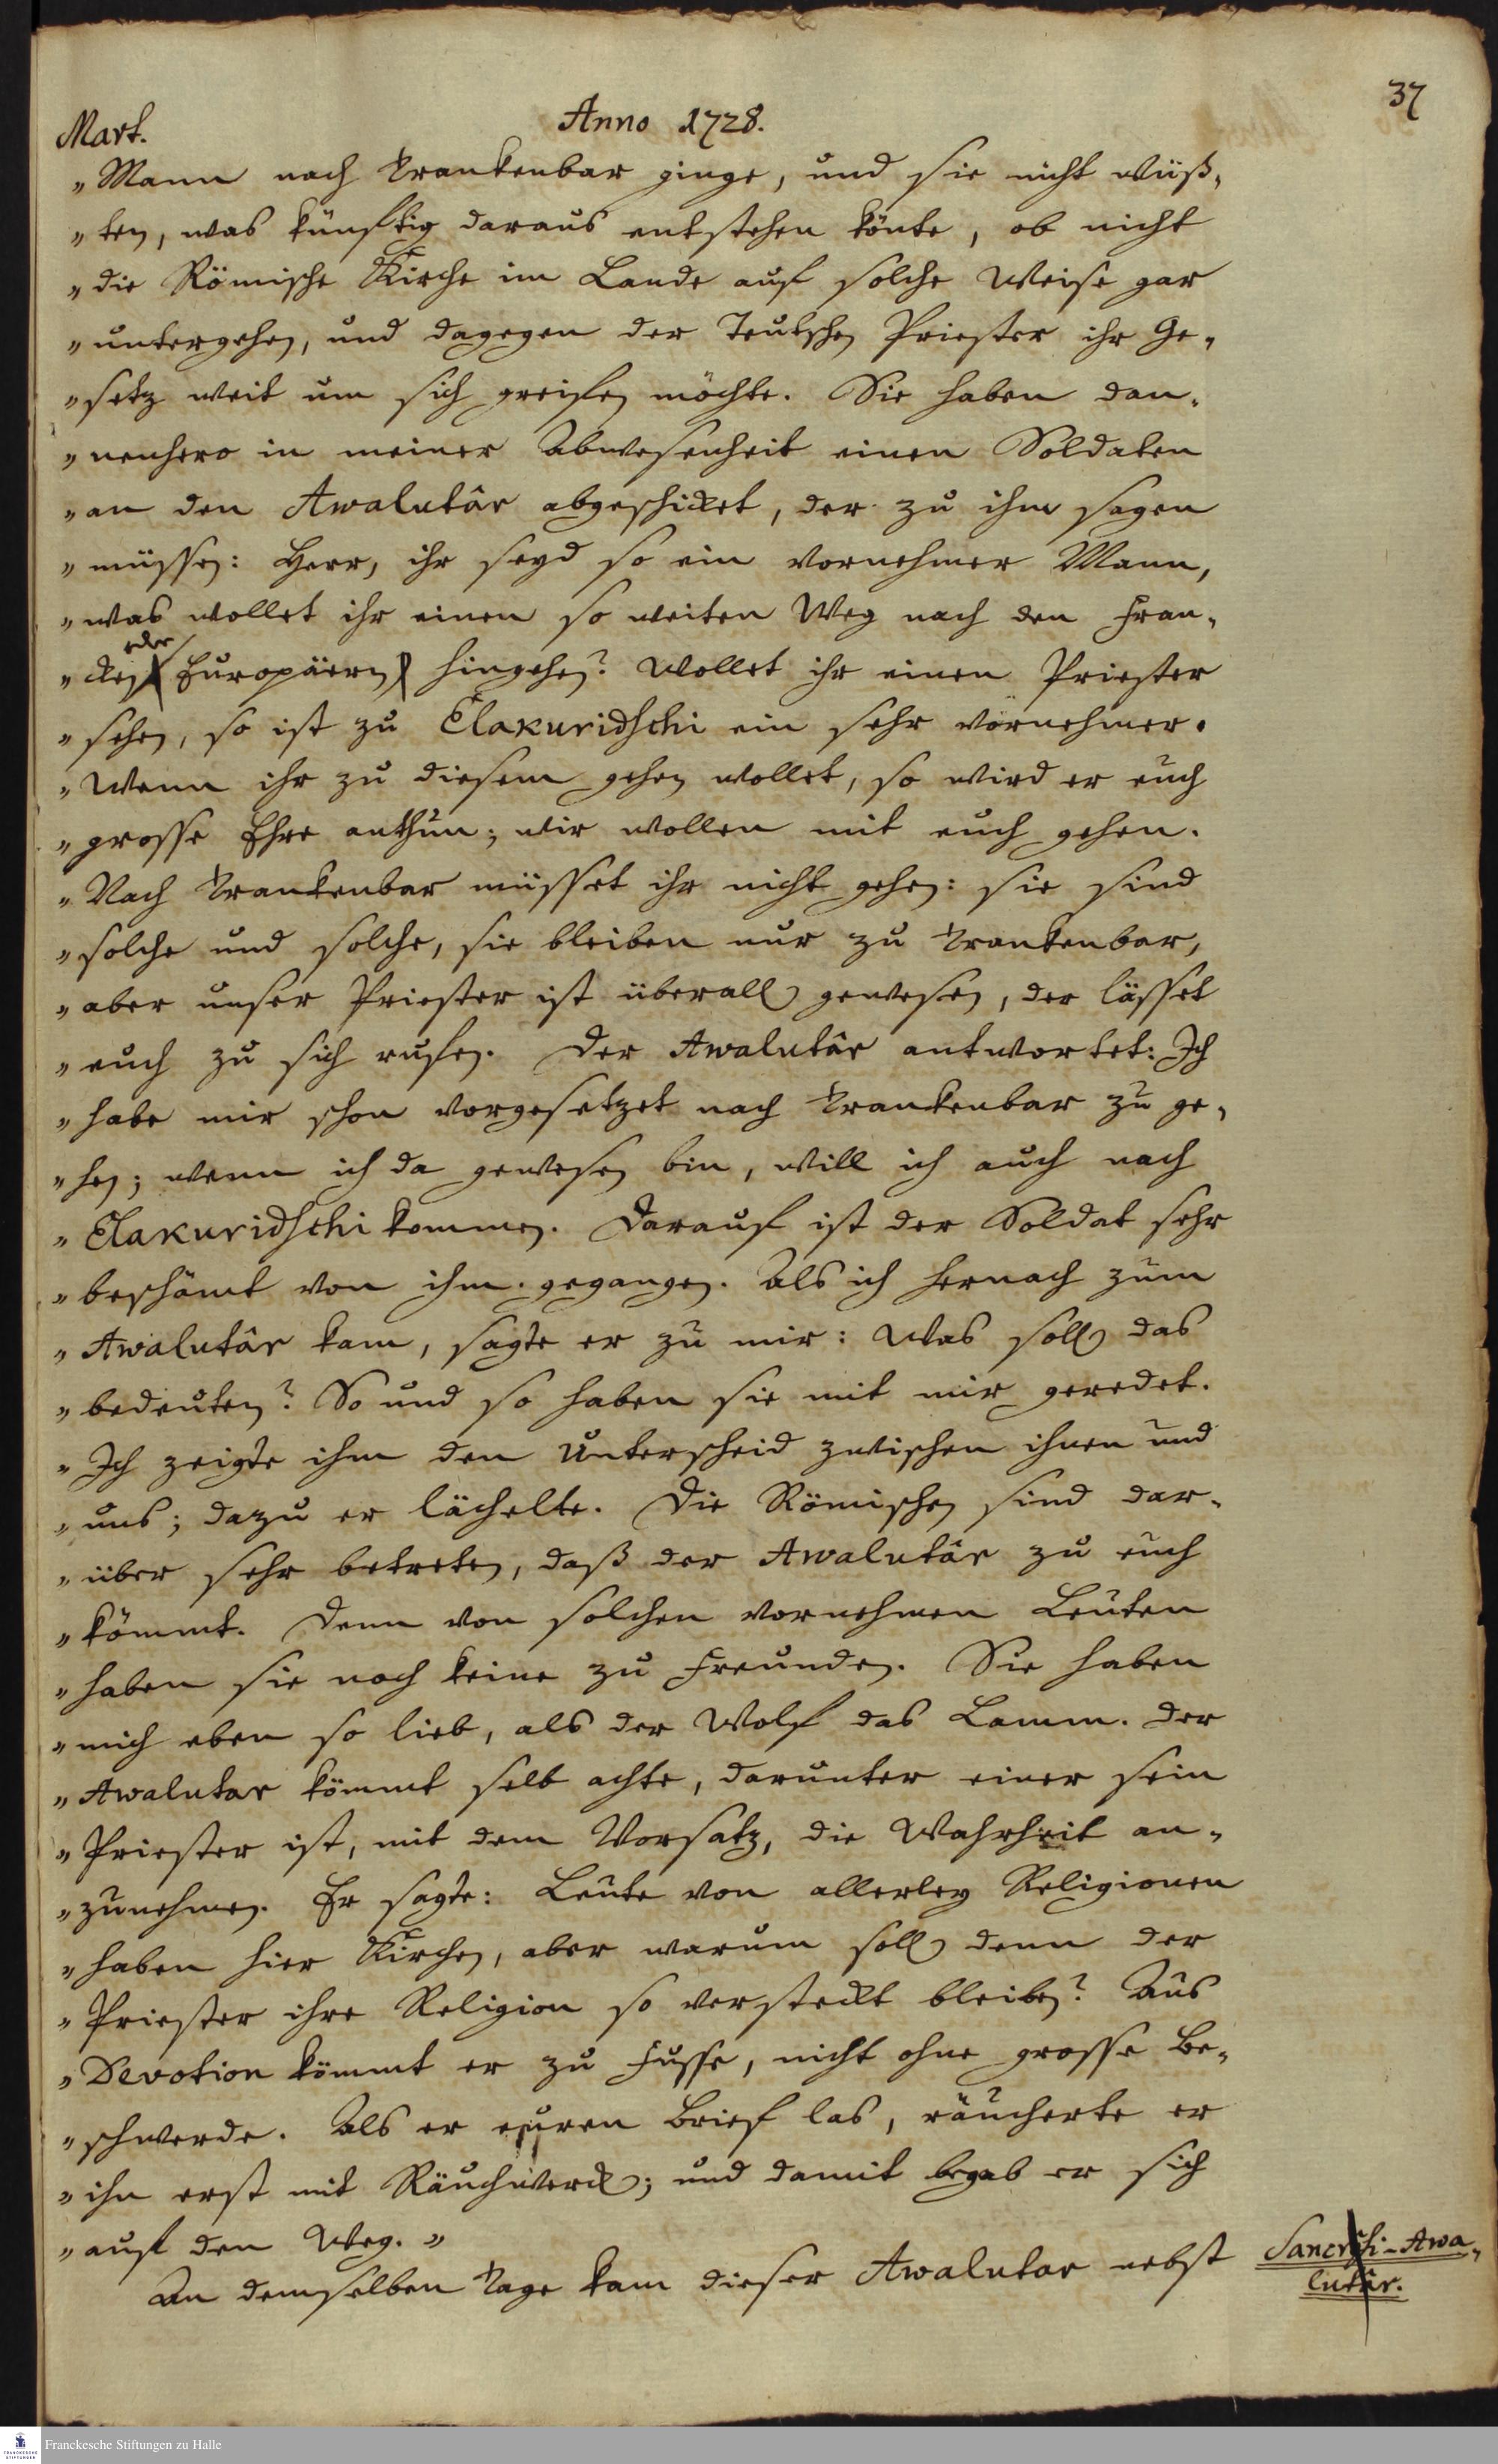 37
Mart. Anno 1728.
„Mann nach Trankenbar ginge, und sie nicht wüß„
„ten, was künftig daraus entstehen könte, ob nicht
„die Römische Kirche im Lande auf solche Weise gar
„untergehen, und dagegen der Teutschen Priester ihr Ge„
„setz weit um sich greifen möchte. Sie haben dan„
„nenhero in meiner Abwesenheit einen Soldaten
„an den Awalutâr abgeschicket, der zu ihm sagen
„müssen: Herr, ihr seyd so ein vornehmer Mann,
„was wollet ihr einen so weiten Weg nach den Fran„
oder
„cken (Europäern) hingehen? Wollet ihr einen Priester
„sehen, so ist zu Elakuridschi ein sehr vornehmer.
„Wenn ihr zu diesem gehen wollet, so wird er euch
„grosse Ehre anthun; wir wollen mit euch gehen.
„Nach Trankenbar müsset ihr nicht gehen: sie sind
„solche und solche, sie bleiben nur zu Trankenbar,
„aber unser Priester ist überall gewesen, der lässet
„euch zu sich rufen. Der Awalutâr antwortet: Ich
„habe mir schon vorgesetzet nach Trankenbar zu ge„
„hen; wenn ich da gewesen bin, will ich auch nach
„Elakuridschi kommen. Darauf ist der Soldat sehr
„beschämt von ihm gegangen. Als ich hernach zum
„Awalutâr kam, sagte er zu mir: Was soll das
„bedeuten? So und so haben sie mit mir geredet.
„Ich zeigte ihm den Unterscheid zwischen ihnen und
„uns; dazu er lächelte. Die Römischen sind dar„
„über sehr betreten, daß der Awalutâr zu euch
„kömmt. Denn von solchen vornehmen Leuten
„haben sie noch keine zu Freunden. Sie haben
„mich eben so lieb, als der Wolf das Lamm. Der
„Awalutar kömmt selb achte, darunter einer sein
„Priester ist, mit dem Vorsatz, die Wahrheit an„
„zunehmen. Er sagte: Leute von allerley Religionen
„haben hier Kirchen, aber warum soll denn der
„Priester ihre Religion so versteckt bleiben? Aus
„Devotion kömmt er zu Fusse, nicht ohne grosse Be„
„schwerde. Als er euren Brief las, räucherte er
„ihn erst mit Räuchwerck; und damit begab er sich
„auf den Weg. „
An demselben Tage kam dieser Awalutar nebst
lutâr.
Franckesche Stiftungen zu Halle